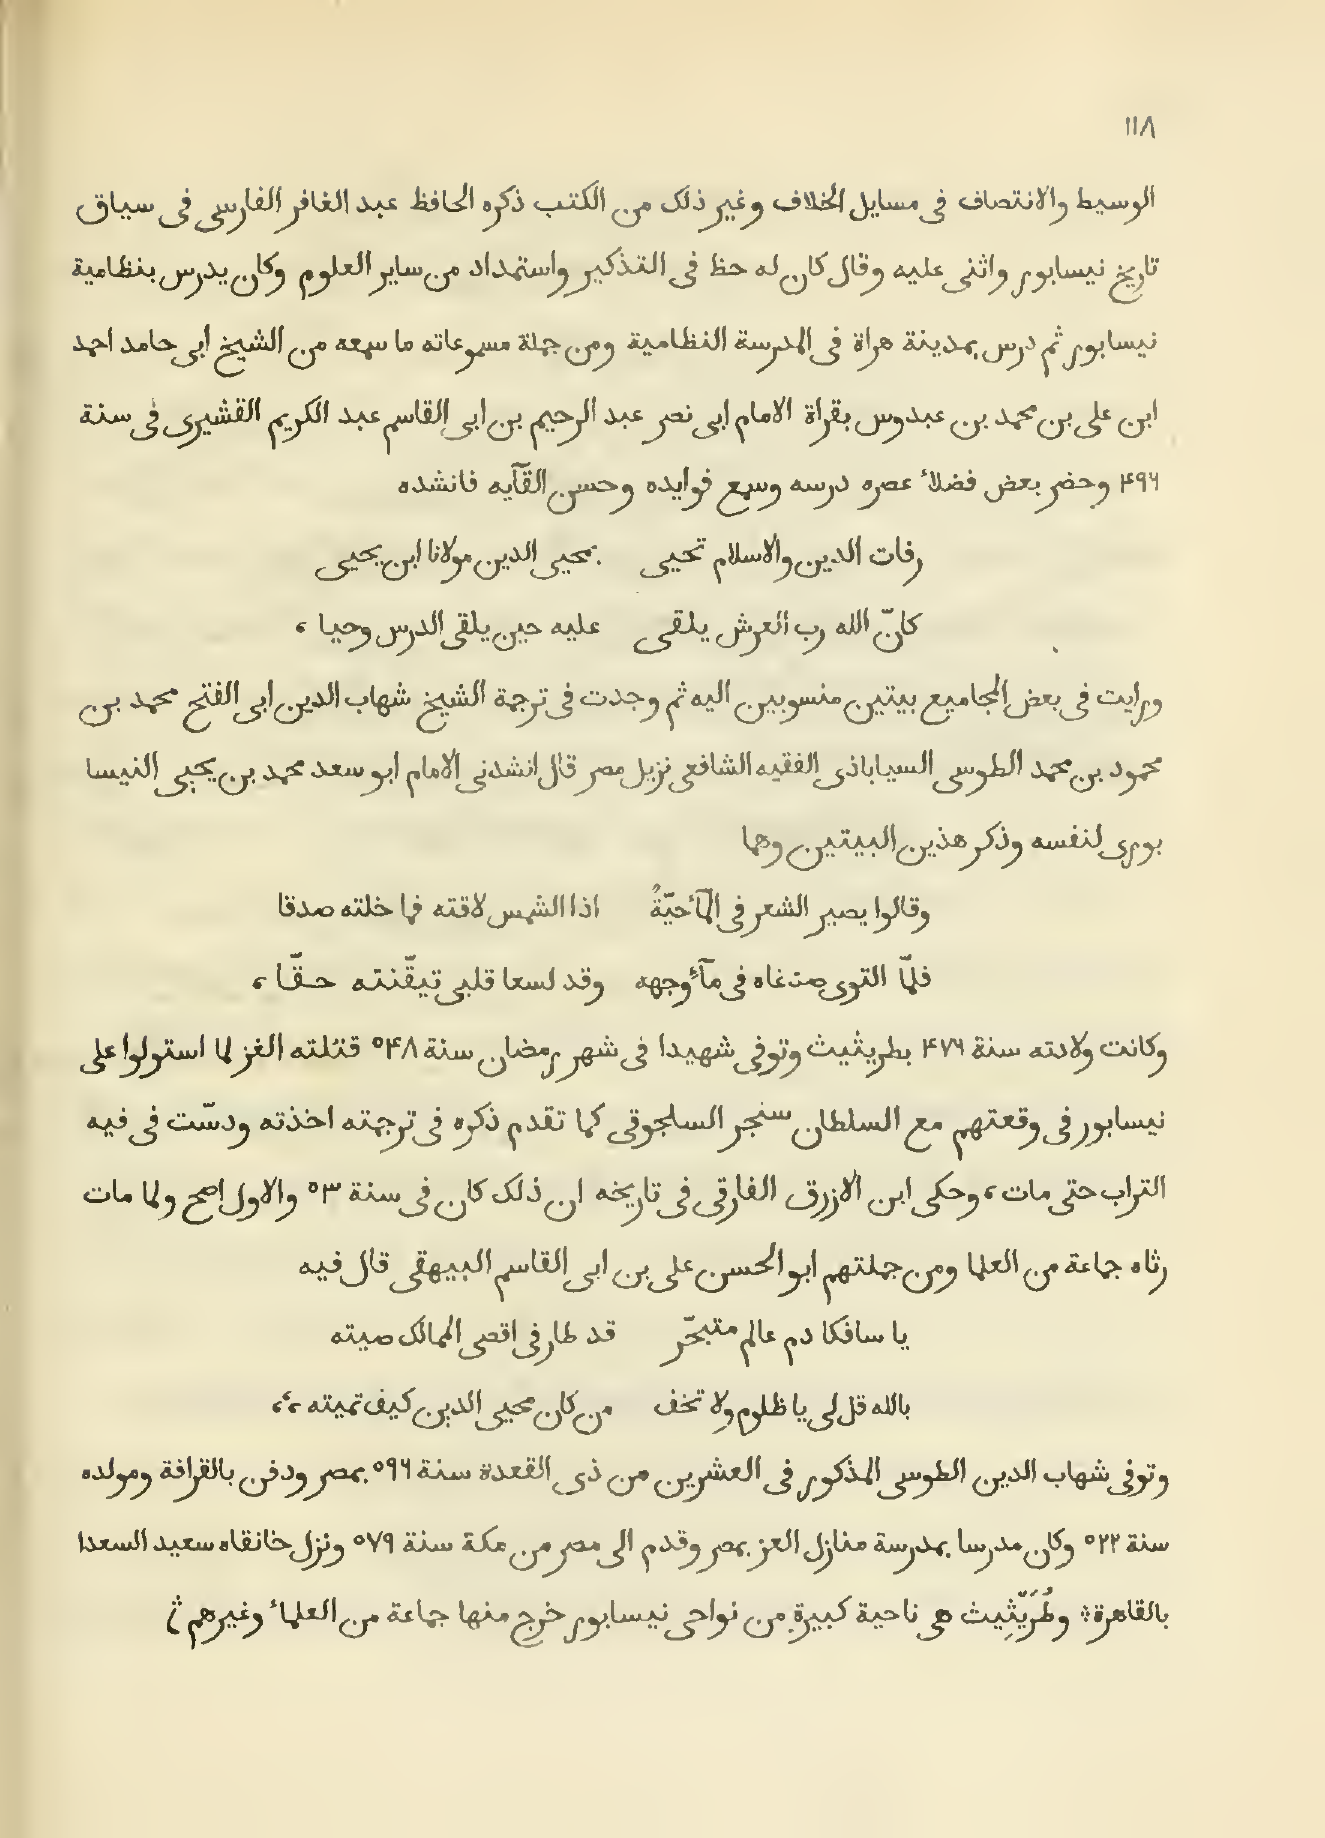 ١١٨
الوسيط والانتصاف فى مسايل الخلاف وغير ذلك من الكتب ذكره الحافظ عبد الغافر الفارسى فى سياق
تاريخ نيسابور واثنى عليه وقال كان له حظ فى التذكير واستمداد من ساير العلوم وكان يدرس بنظامية
نيسابور ثم درس بمدينة هراة فى المدرسة النظامية ومن جملة مسموعاته ما سمعه من الشيخ ابى حامد احمد
ابن على بن محمد بن عبدوس بقراة الامام ابى نصر عبد الرحيم بن ابى القاسم عبد الكريم القشيرى فى سنة
۴۹۶ وحضر بعض فضلاء عصره درسه وسمع فوايده وحسن القآيه فانشده
رفات الدين والاسلام تحيى بمحيى الدين مولانا ابن يحيى
كانّ الله رب العرش يلقى عليه حين يلقى الدرس وحيا ،
ورايت فى بعض المجاميع بيتين منسوبين اليه ثم وجدت فى ترجمة الشيخ شهاب الدين ابى الفتح محمد بن
محمود بن محمد الطوسى السياباذى الفقيه الشافعى نزيل مصر قال انشدنى الامام ابو سعد محمد بن يحيى النيسا
بورى لنفسه وذكر هذين البيتين وهما
وقالوا يصير الشعر فى المآء حيّةً اذا الشمس لاقته فما خلته صدقا
فلمّا التوى صدغاه فى مآء وجهه وقد لسعا قلبى تيقّنته حـقّا ،
وكانت ولادته سنة ۴۷۶ بطريثيث وتوفى شهيدا فى شهر رمضان سنة ۵۴۸ قتلته الغز لما استولوا على
نيسابور فى وقعتهم مع السلطان سنجر السلجوقى كما تقدم ذكره فى ترجمته اخذته ودسّت فى فيه
التراب حتى مات ، وحكى ابن الازرق الفارقى فى تاريخه ان ذلك كان فى سنة ۵۳ والاول اصح ولما مات
رثاه جماعة من العلما ومن جملتهم ابو الحسن على بن ابى القاسم البيهقى قال فيه
يا سافكا دم عالم متبحّر قد طار فى اقصى الممالك صيته
بالله قل لى يا ظلوم ولا تخف من كان محيى الدين كيف تميته ،،
وتوفى شهاب الدين الطوسى المذكور فى العشرين من ذى القعدة سنة ۵۹۶ بمصر ودفن بالقرافة ومولده
سنة ۵۲۲ وكان مدرسا بمدرسة منازل العز بمصر وقدم الى مصر من مكة سنة ۵۷۹ ونزل خانقاه سعيد السعدا
بالقاهرة : وطُرَيْثِيث هى ناحية كبيرة من نواحى نيسابور خرج منها جماعة من العلماء وغيرهم